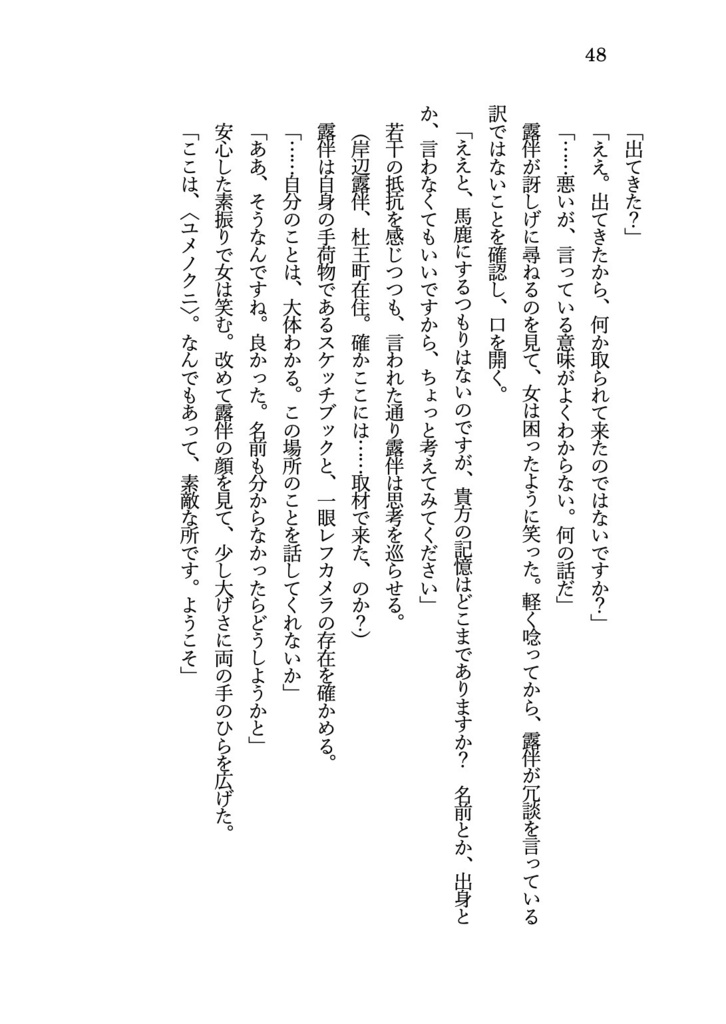 48
「出てきた？」
「ええ。出てきたから、何か取られて来たのではないですか？」
「……悪いが、言っている意味がよくわからない。何の話だ」
露伴が訝しげに尋ねるのを見て、女は困ったように笑った。軽く唸ってから、露伴が冗談を言っている
訳ではないことを確認し、口を開く。
「ええと、馬鹿にするつもりはないのですが、貴方の記憶はどこまでありますか？　名前とか、出身と
か、言わなくてもいいですから、ちょっと考えてみてください」
若干の抵抗を感じつつも、言われた通り露伴は思考を巡らせる。
（岸辺露伴、杜王町在住。確かここには……取材で来た、のか？）
露伴は自身の手荷物であるスケッチブックと、一眼レフカメラの存在を確かめる。
「……自分のことは、大体わかる。この場所のことを話してくれないか」
「ああ、そうなんですね。良かった。名前も分からなかったらどうしようかと」
安心した素振りで女は笑む。改めて露伴の顔を見て、少し大げさに両の手のひらを広げた。
「ここは、〈ユメノクニ〉。なんでもあって、素敵な所です。ようこそ」